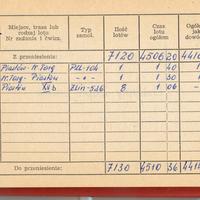 Miejsce, trasa lub rodzaj lotu Nr zadania i ćwicz. Typ samol. Ilość lotów Czas lotu ogółem Ogół jak dowó
Z przeniesienia: 7120 4506 20 441
Piastów-N.Targ PZL-104 1 1 40
N.Targ-Piastów -"- 1 1 30
Piastów Zlin-526 8 1 06 -
Do przeniesienia: 7130 4510 36 441